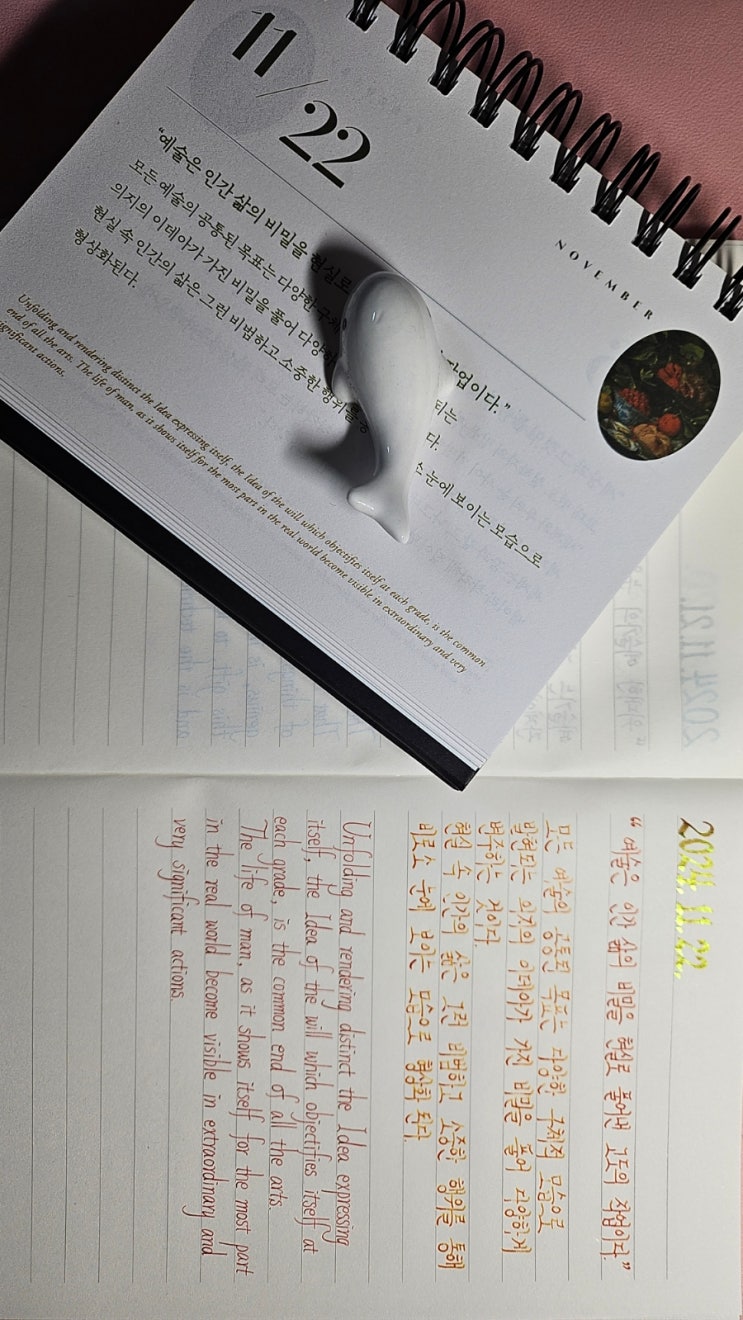 11/22
NOVEMBER
“예술은 인간 삶의 비밀을 현실로
작업이다.”
모든 예술의 공통된 목표는 다양한 구체
되는
의지의 이데아가 가진 비밀을 풀어 다양하
다.
현실 속 인간의 삶은 그런 비범하고 소중한 행위를 통
소 눈에 보이는 모습으로
형상화된다.
Unfolding and rendering distinct the Idea expressing itself, the Idea of the will which objectifies itself at each grade, is the common
end of all the arts. The life of man, as it shows itself for the most part in the real world become visible in extraordinary and very
significant actions.
2024. 11. 22.
“ 예술은 인간 삶의 비밀을 현실로 풀어낸 고도의 작업이다.”
모든 예술의 공통된 목표는 다양한 구체적 모습으로
발현되는 의지의 이데아가 가진 비밀을 풀어 다양하게
변주하는 것이다.
현실 속 인간의 삶은 그런 비범하고 소중한 행위를 통해
비로소 눈에 보이는 모습으로 형상화 된다.
Unfolding and rendering distinct the Idea expressing
itself, the Idea of the will which objectifies itself at
each grade, is the common end of all the arts.
The life of man, as it shows itself for the most part
in the real world become visible in extraordinary and
very significant actions.